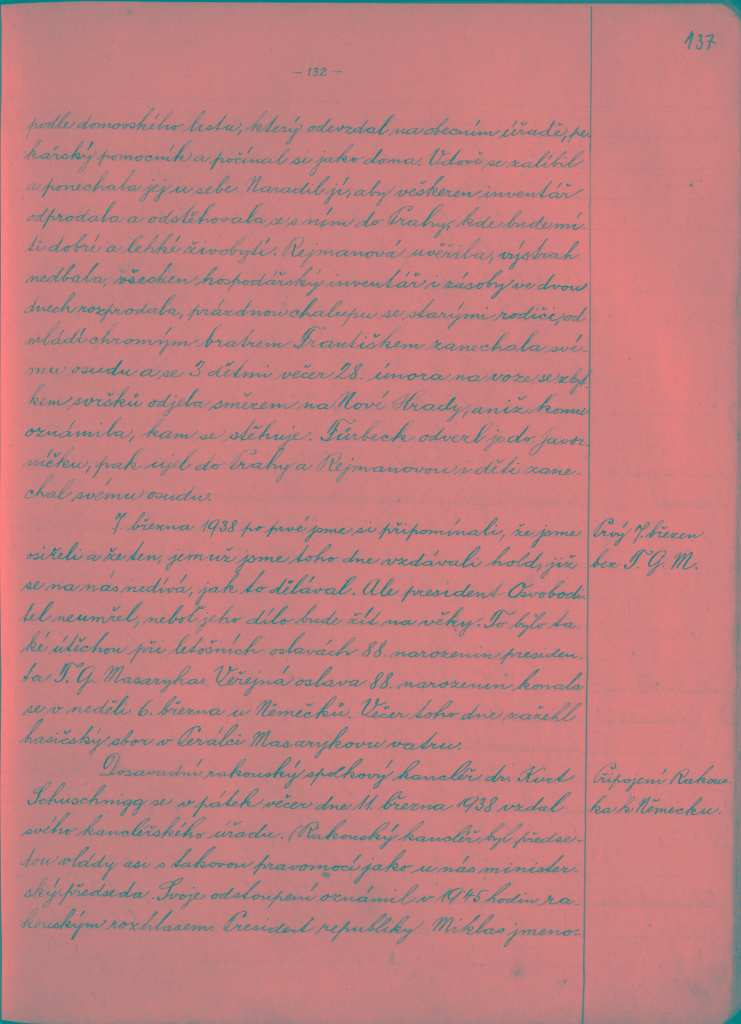 137
- 132 -
podle domovského listu, který odevzdal na obecním úřadě, pe-
kařský pomocník a počínal si jako doma. Vdově se zalíbil
a ponechala jej u sebe. Naradil jí, aby veškeren inventář
odprodala a odstěhovala se s ním do Prahy, kde bude mí-
ti dobré a lehké živobytí. Rejmanová uvěřila, výstrah
nedbala, všechen hospodářský inventář i zásoby ve dvou
dnech rozprodala, prázdnou chalupu se starými rodiči, od
mládí chromým bratrem Františkem zanechala své-
mu osudu a se 3 dětmi večer 28. února na voze se zbyt-
kem svršků odjela směrem na Nové Hrady, aniž komu
oznámila, kam se stěhuje. Fürbeck odvezl je do Javor-
níčku, pak ujel do Prahy a Rejmanovou i děti zane-
chal svému osudu.
7. března 1938 po prvé jsme si připomínali, že jsme
osiřeli a že ten, jemuž jsme toho dne vzdávali hold, již
se na nás nedívá, jak to dělával. Ale president Osvobodi-
tel neumřel, neboť jeho dílo bude žít na věky. To bylo ta-
ké útěchou při letošních oslavách 88. narozenin presiden-
ta T. G. Masaryka. Veřejná oslava 88. narozenin konala
se v neděli 6. března u Němečků. Večer toho dne zažehl
hasičský sbor v Perálci Masarykovu vatru.
Prvý 7. březen
bez T. G. M.
Dosavadní rakouský spolkový kancléř dr. Kurt
Schuschnigg se v pátek večer dne 11. března 1938 vzdal
svého kancléřského úřadu. (Rakouský kancléř byl předse-
dou vlády asi s takovou pravomocí jako u nás minister-
ský předseda. Svoje odstoupení oznámil v 1945 hodin ra-
kouským rozhlasem. President republiky Miklas jmeno-
Připojení Rakous-
ka k Německu.